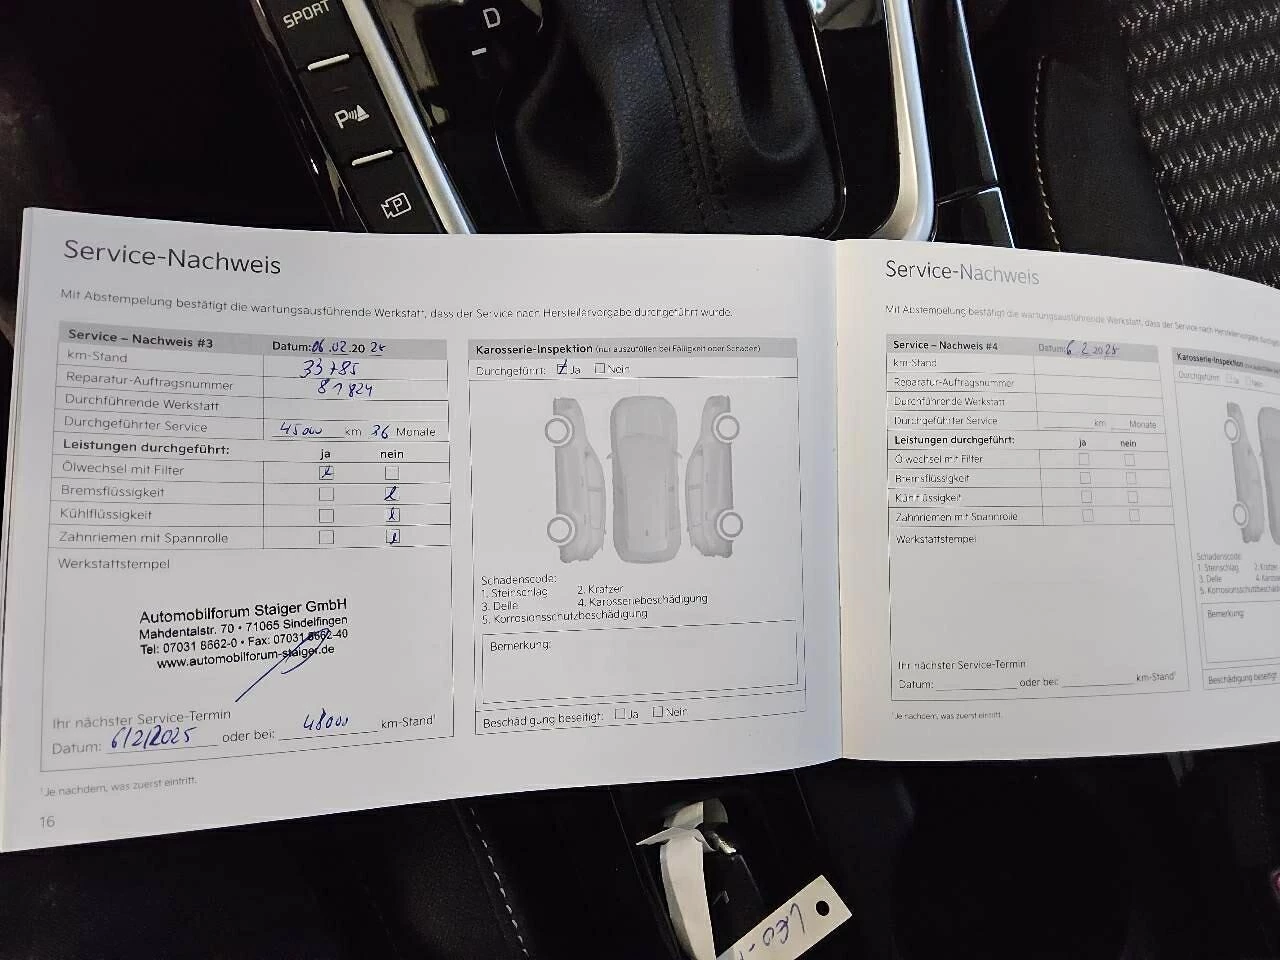 SPORT
D
P
P
Service-Nachweis
Mit Abstempelung bestätigt die wartungsausführende Werkstatt, dass der Service nach Herstellervorgabe durchgeführt wurde.
Service – Nachweis #3 Datum: 06.02.2024
km-Stand 33785
Reparatur-Auftragsnummer 81824
Durchführende Werkstatt
Durchgeführter Service 45000 km 36 Monate
Leistungen durchgeführt: ja nein
Ölwechsel mit Filter
Bremsflüssigkeit
Kühlflüssigkeit
Zahnriemen mit Spannrolle
Werkstattstempel
Automobilforum Staiger GmbH
Mahdentalstr. 70 • 71065 Sindelfingen
Tel: 07031 8662-0 • Fax: 07031 8662-40
www.automobilforum-staiger.de
Ihr nächster Service-Termin
Datum: 6/2/2025 oder bei: 48000 km-Stand¹
¹Je nachdem, was zuerst eintritt.
16
Karosserie-Inspektion (nur auszufüllen bei Fälligkeit oder Schaden)
Durchgeführt: Ja Nein
Schadenscode:
1. Steinschlag 2. Kratzer
3. Delle 4. Karosseriebeschädigung
5. Korrosionsschutzbeschädigung
Bemerkung:
Beschädigung beseitigt: Ja Nein
Service-Nachweis
Mit Abstempelung bestätigt die wartungsausführende Werkstatt, dass der Service nach Herstellervorgabe
Service – Nachweis #4 Datum: 6.2.2025
km-Stand
Reparatur-Auftragsnummer
Durchführende Werkstatt
Durchgeführter Service km Monate
Leistungen durchgeführt: ja nein
Ölwechsel mit Filter
Bremsflüssigkeit
Kühlflüssigkeit
Zahnriemen mit Spannrolle
Werkstattstempel
Ihr nächster Service-Termin
Datum: oder bei: km-Stand¹
¹Je nachdem, was zuerst eintritt.
Karosserie-Inspektion
Durchgeführt: Ja
Schadenscode:
1. Steinschlag 2. Kratzer
3. Delle
5. Korrosionsschutzbeschä
Bemerkung:
Beschädigung beseitigt
LEO-